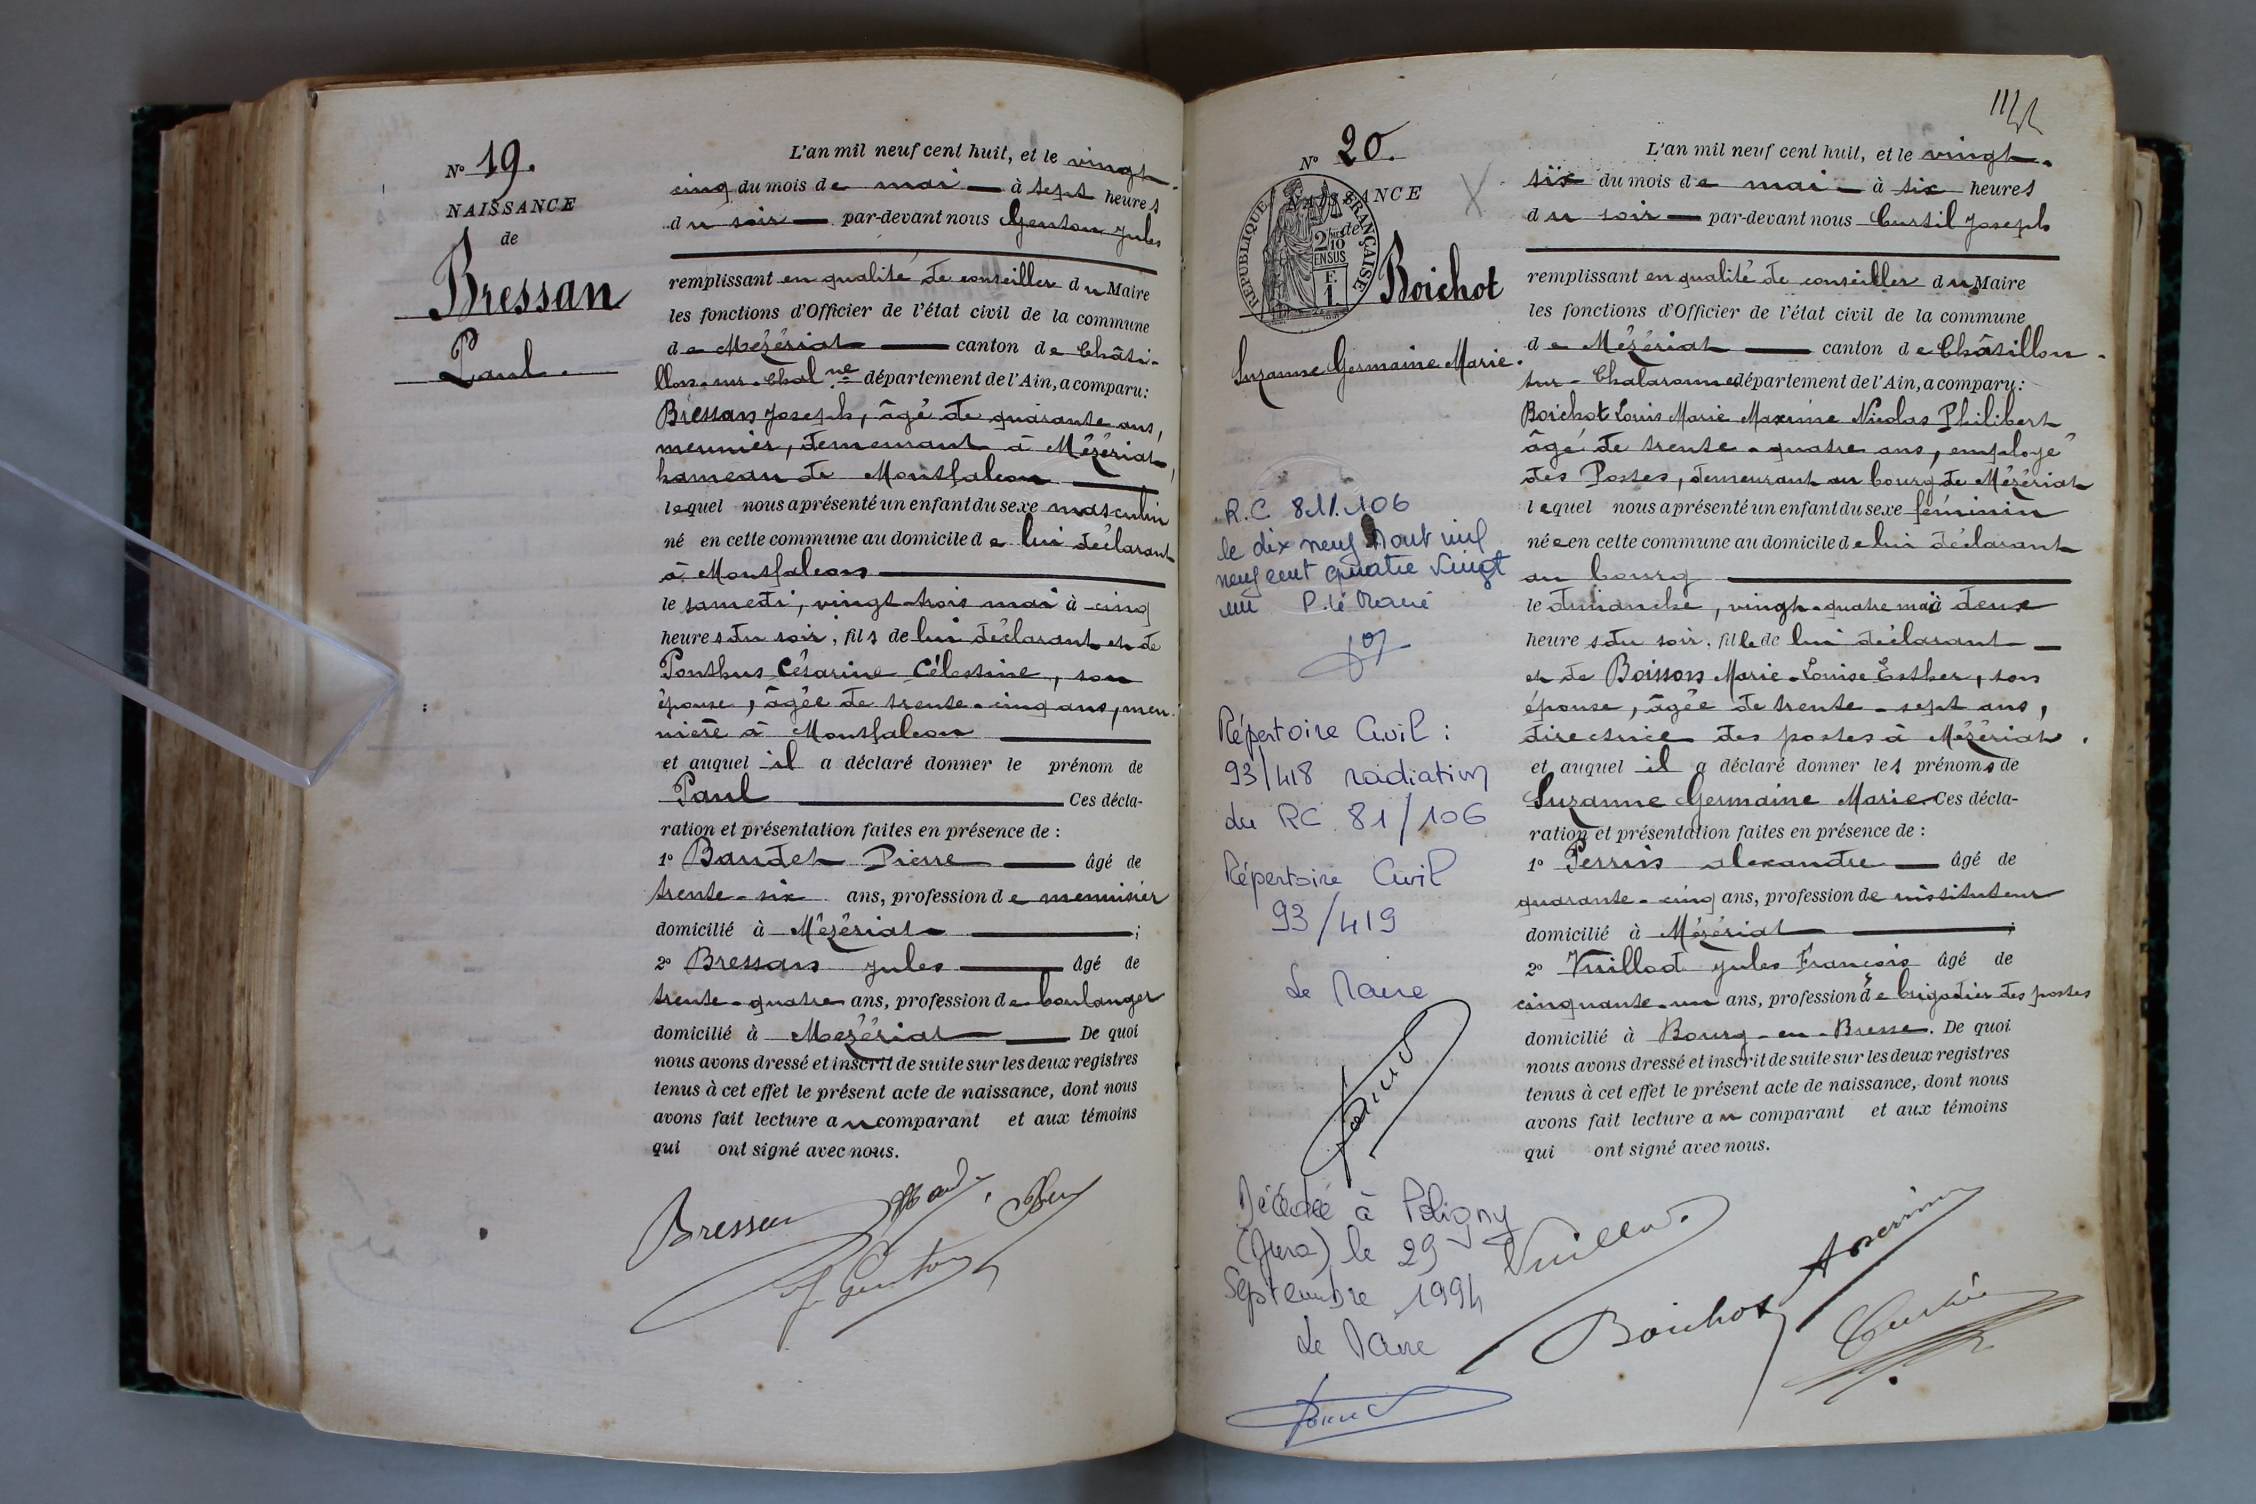 N° 19.
NAISSANCE
de
Bressan
Paul.
L'an mil neuf cent huit, et le vingt-
cinq du mois de mai — à sept heures
du soir — par-devant nous Genton Jules
remplissant en qualité de conseiller du Maire
les fonctions d'Officier de l'état civil de la commune
de Mézériat — canton de Châti-
llon-sur-Chalne département de l'Ain, a comparu:
Bressan Joseph, âgé de quarante ans,
meunier, demeurant à Mézériat,
hameau de Montfalcon —
lequel nous a présenté un enfant du sexe masculin
né en cette commune au domicile de lui déclarant
à Montfalcon —
le samedi, vingt-trois mai à cinq
heures du soir, fils de lui déclarant et de
Ponthus Césarine Célestine, son
épouse, âgée de trente-cinq ans, meu-
nière à Montfalcon —
et auquel il a déclaré donner le prénom de
Paul — Ces décla-
ration et présentation faites en présence de :
1° Baudet Pierre — âgé de
trente-six ans, profession de menuisier
domicilié à Mézériat — ;
2° Bressan Jules — âgé de
trente-quatre ans, profession de boulanger
domicilié à Mézériat — De quoi
nous avons dressé et inscrit de suite sur les deux registres
tenus à cet effet le présent acte de naissance, dont nous
avons fait lecture au comparant et aux témoins
qui ont signé avec nous.
Bressan
J. Genton
N° 20.
NAISSANCE
de
RÉPUBLIQUE FRANÇAISE
2/10
EN SUS
F.
1.
Boichot
Suzanne Germaine Marie.
R.C 811.106
le dix neuf Aout mil
neuf cent quatre vingt
un P. le Maire
Répertoire Civil :
93/418 radiation
du RC 81/106
Répertoire Civil
93/419
Le Maire
Décédée à Poligny
(Jura) le 29
Septembre 1994
Le Maire
L'an mil neuf cent huit, et le vingt-
six du mois de mai — à six heures
du soir — par-devant nous Curtil Joseph
remplissant en qualité de conseiller du Maire
les fonctions d'Officier de l'état civil de la commune
de Mézériat — canton de Châtillon-
sur-Chalaronne département de l'Ain, a comparu:
Boichot Louis Marie Maxime Nicolas Philibert
âgé de trente-quatre ans, employé
des Postes, demeurant au bourg de Mézériat
lequel nous a présenté un enfant du sexe féminin
née en cette commune au domicile de lui déclarant
au bourg —
le dimanche, vingt-quatre mai à deux
heures du soir, fille de lui déclarant —
et de Boisson Marie-Louise Esther, son
épouse, âgée de trente-sept ans,
directrice des postes à Mézériat.
et auquel il a déclaré donner les prénoms de
Suzanne Germaine Marie. Ces décla-
ration et présentation faites en présence de :
1° Perrin Alexandre — âgé de
quarante-cinq ans, profession de instituteur
domicilié à Mézériat — ;
2° Vuillod Jules François âgé de
cinquante-un ans, profession de brigadier des postes
domicilié à Bourg-en-Bresse. De quoi
nous avons dressé et inscrit de suite sur les deux registres
tenus à cet effet le présent acte de naissance, dont nous
avons fait lecture au comparant et aux témoins
qui ont signé avec nous.
Vuillod
A Perrin
Boichot
Curtil